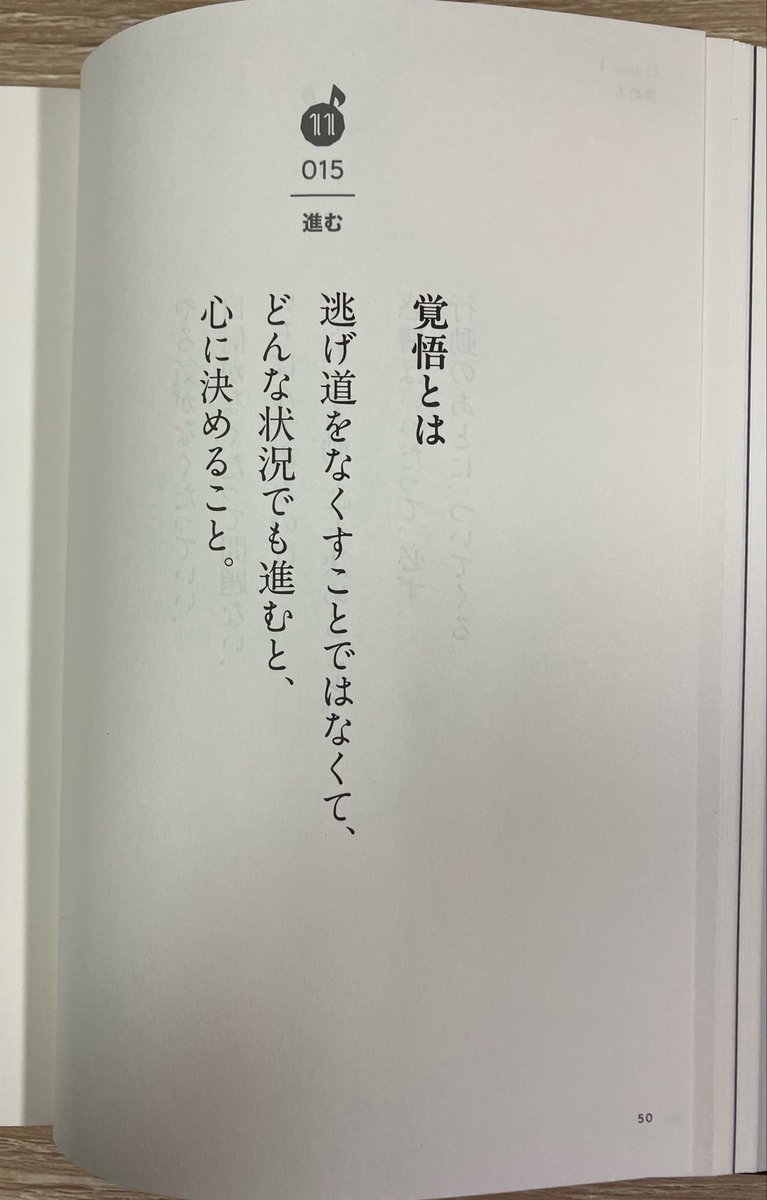 015
進む
覚悟とは
逃げ道をなくすことではなくて、
どんな状況でも進むと、
心に決めること。
50